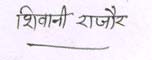 शिवानी राजौर